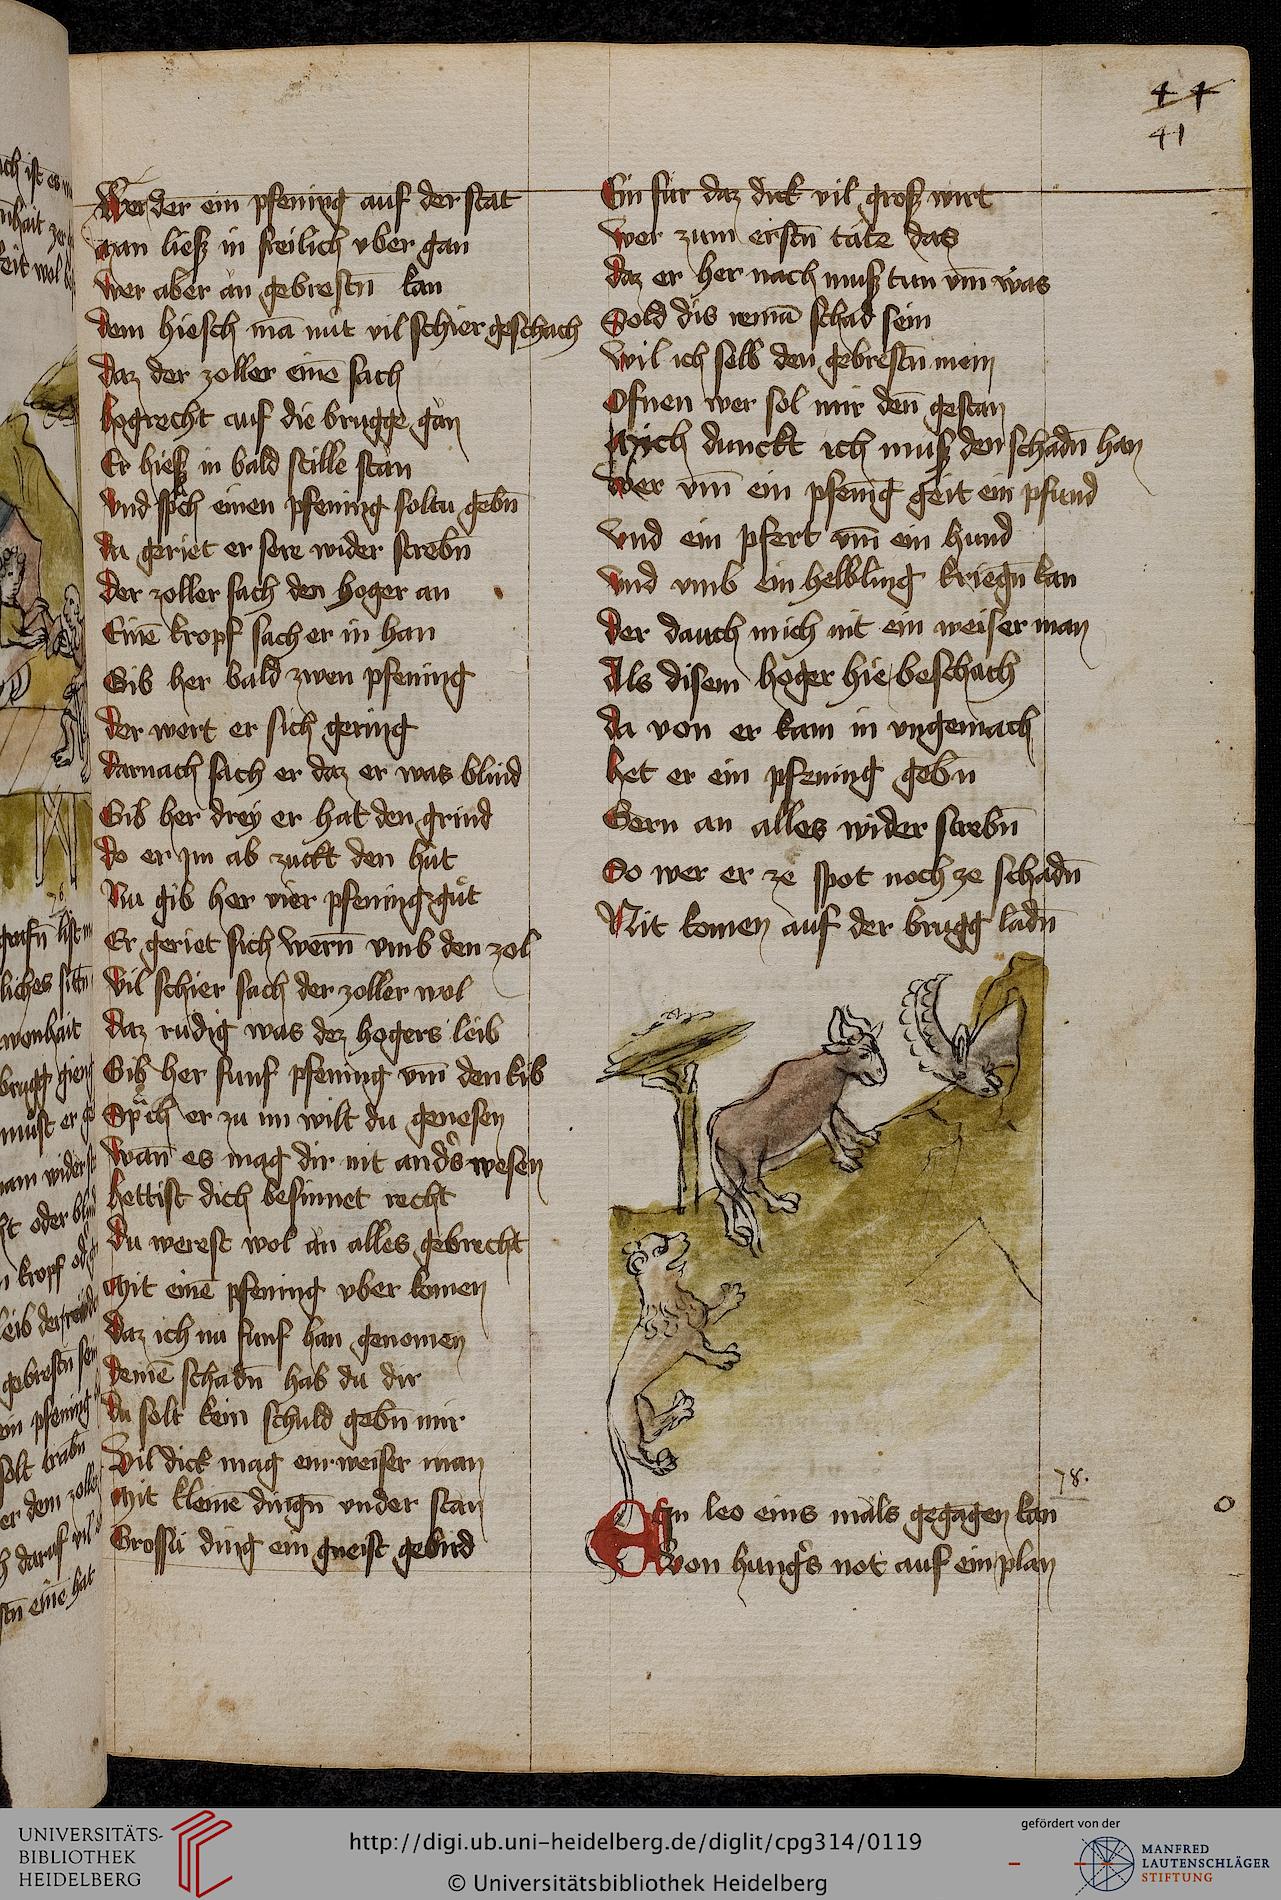 44
41
Werder ein pfening auf der stat
man liesz in freilich vber gan
wer aber an gebrestn̄ kan
dem hiesch mā mit vil schier geschach
daz der zoller einē sach
hogrecht auf die brugge gan
Er hiesz in bald stille stan
vnd sp̄ch einen pfening soltu gebn̄
du geriet er sere wider strebn̄
der zoller sach den hoger an
Einē kropf sach er in han
Gib her bald zwen pfening
der wert er sich gering
darnach sach er daz er was blind
Gib her drey er hat den grind
do er im ab zuckt den hůt
Nu gib her vier pfening gůt
Er geriet sich wern̄ vmb den zol
vil schier sach der zoller wol
daz rudig was dez hogers leib
Gib her funf pfening vm̄ den kib
Sp̄ch er zu im wilt du genesen
wan̄ es mag dir nit anders wesen
hettist dich besinnet recht
du werest wol an alles gebrecht
mit einē pfening vber komen
daz ich nu funf han genomen
deinē schadn̄ hab du dir
du solt kein schuld gebn̄ mir
vil dick mag ein weiser man
mit kleinē dingn̄ vnder stan
Grossu ding ein gneist gebird
Ein fur daz dick vil grosz wirt
wer zum erstn̄ tate das
daz er her nach musz tun vm̄ was
Sold dis iemā schad sein
wil ich selb den gebrestn̄ mein
Ofnen wer sol mir den̄ gestan
Mich dunckt ich musz den schadn̄ han
wer vm̄ ein pfenīg geit ein pfund
vnd ein pfert vm̄ ein hund
vnd vmb ein helbling kriegn̄ kan
der dauch mich nit ein weiser man
Als disem hoger hie beschach
da von er kam in vngemach
het er ein pfening gebn̄
Gern an alles wider strebn̄
So wer er ze spot noch ze schadn̄
Nit komen auf der brugg ladn̄
78.
Ein leo eins mals gegagen kan
von hungers not auf ein plan
UNIVERSITÄTS-
BIBLIOTHEK
HEIDELBERG
http://digi.ub.uni-heidelberg.de/diglit/cpg314/0119
© Universitätsbibliothek Heidelberg
gefördert von der
MANFRED
LAUTENSCHLÄGER
STIFTUNG